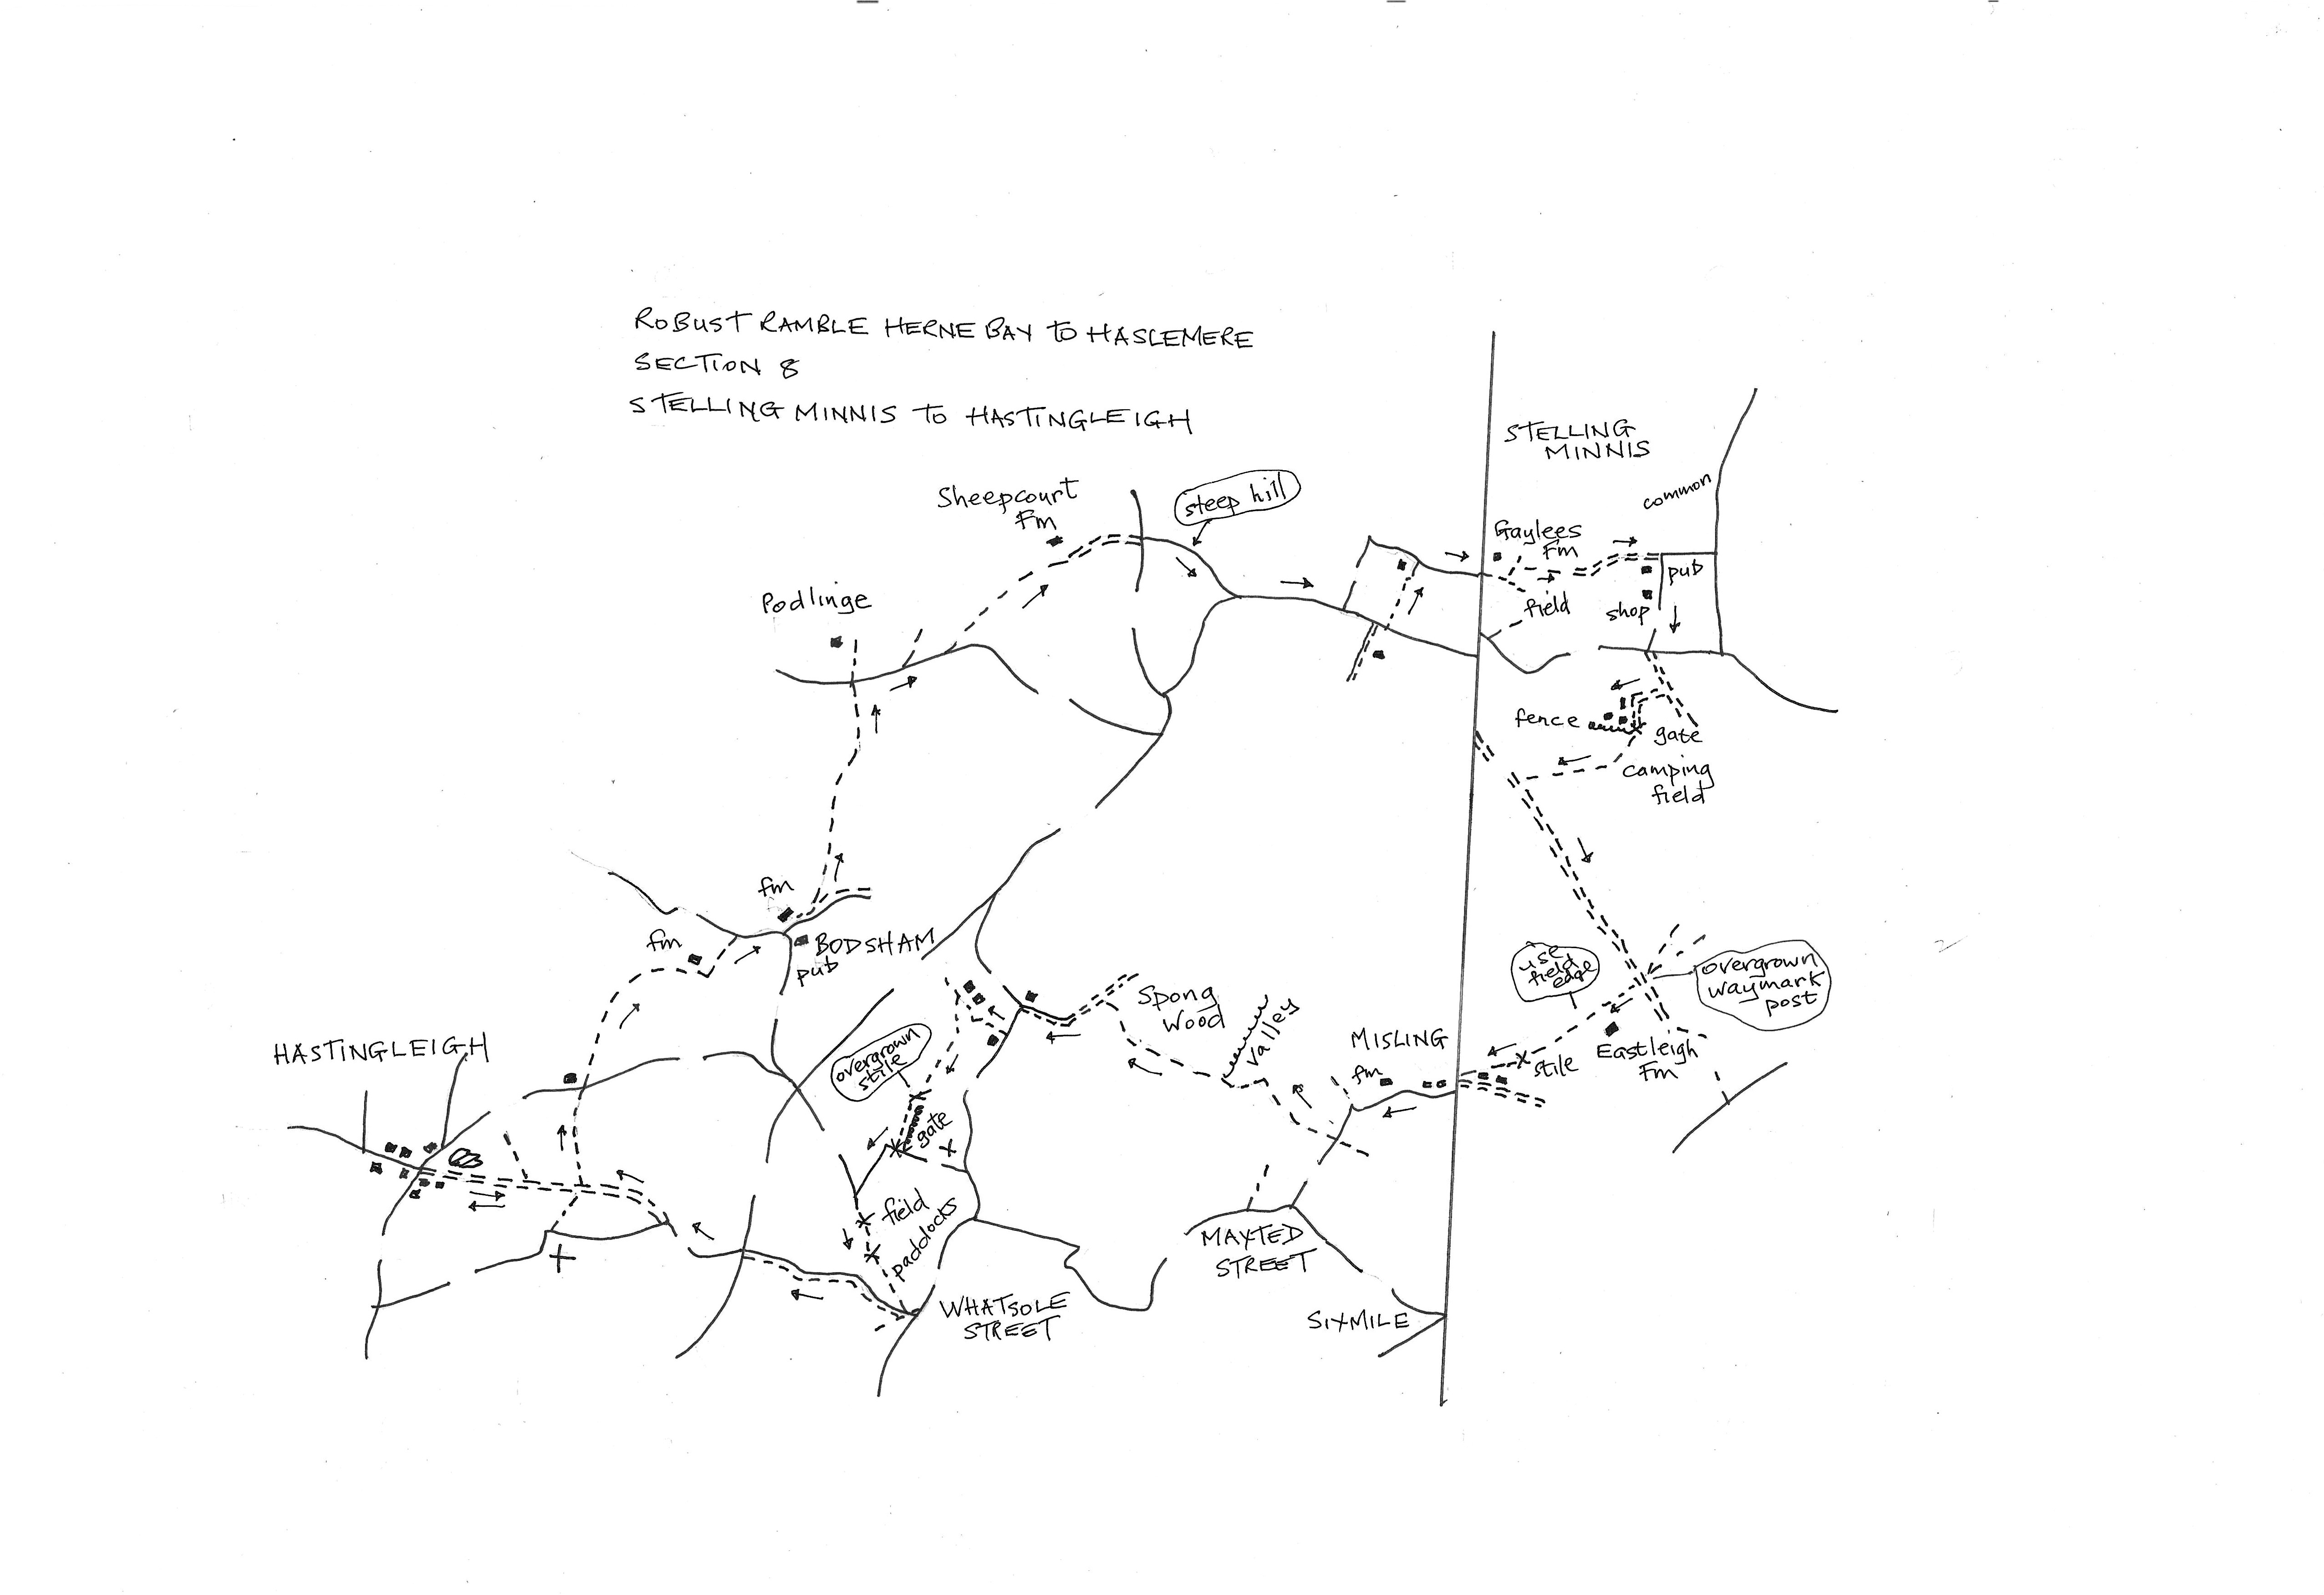 ROBUST RAMBLE HERNE BAY TO HASLEMERE
SECTION 8
STELLING MINNIS TO HASTINGLEIGH
STELLING
MINNIS
common
Sheepcourt
Fm
steep hill
Gaylees
Fm
pub
field
shop
Podlinge
fence
gate
camping
field
fm
BODSHAM
pub
fm
use
field
edge
overgrown
waymark
post
Spong
Wood
Valley
MISLING
fm
stile
Eastleigh
Fm
HASTINGLEIGH
overgrown
stile
gate
field
paddocks
MAXTED
STREET
WHATSOLE
STREET
SIXMILE